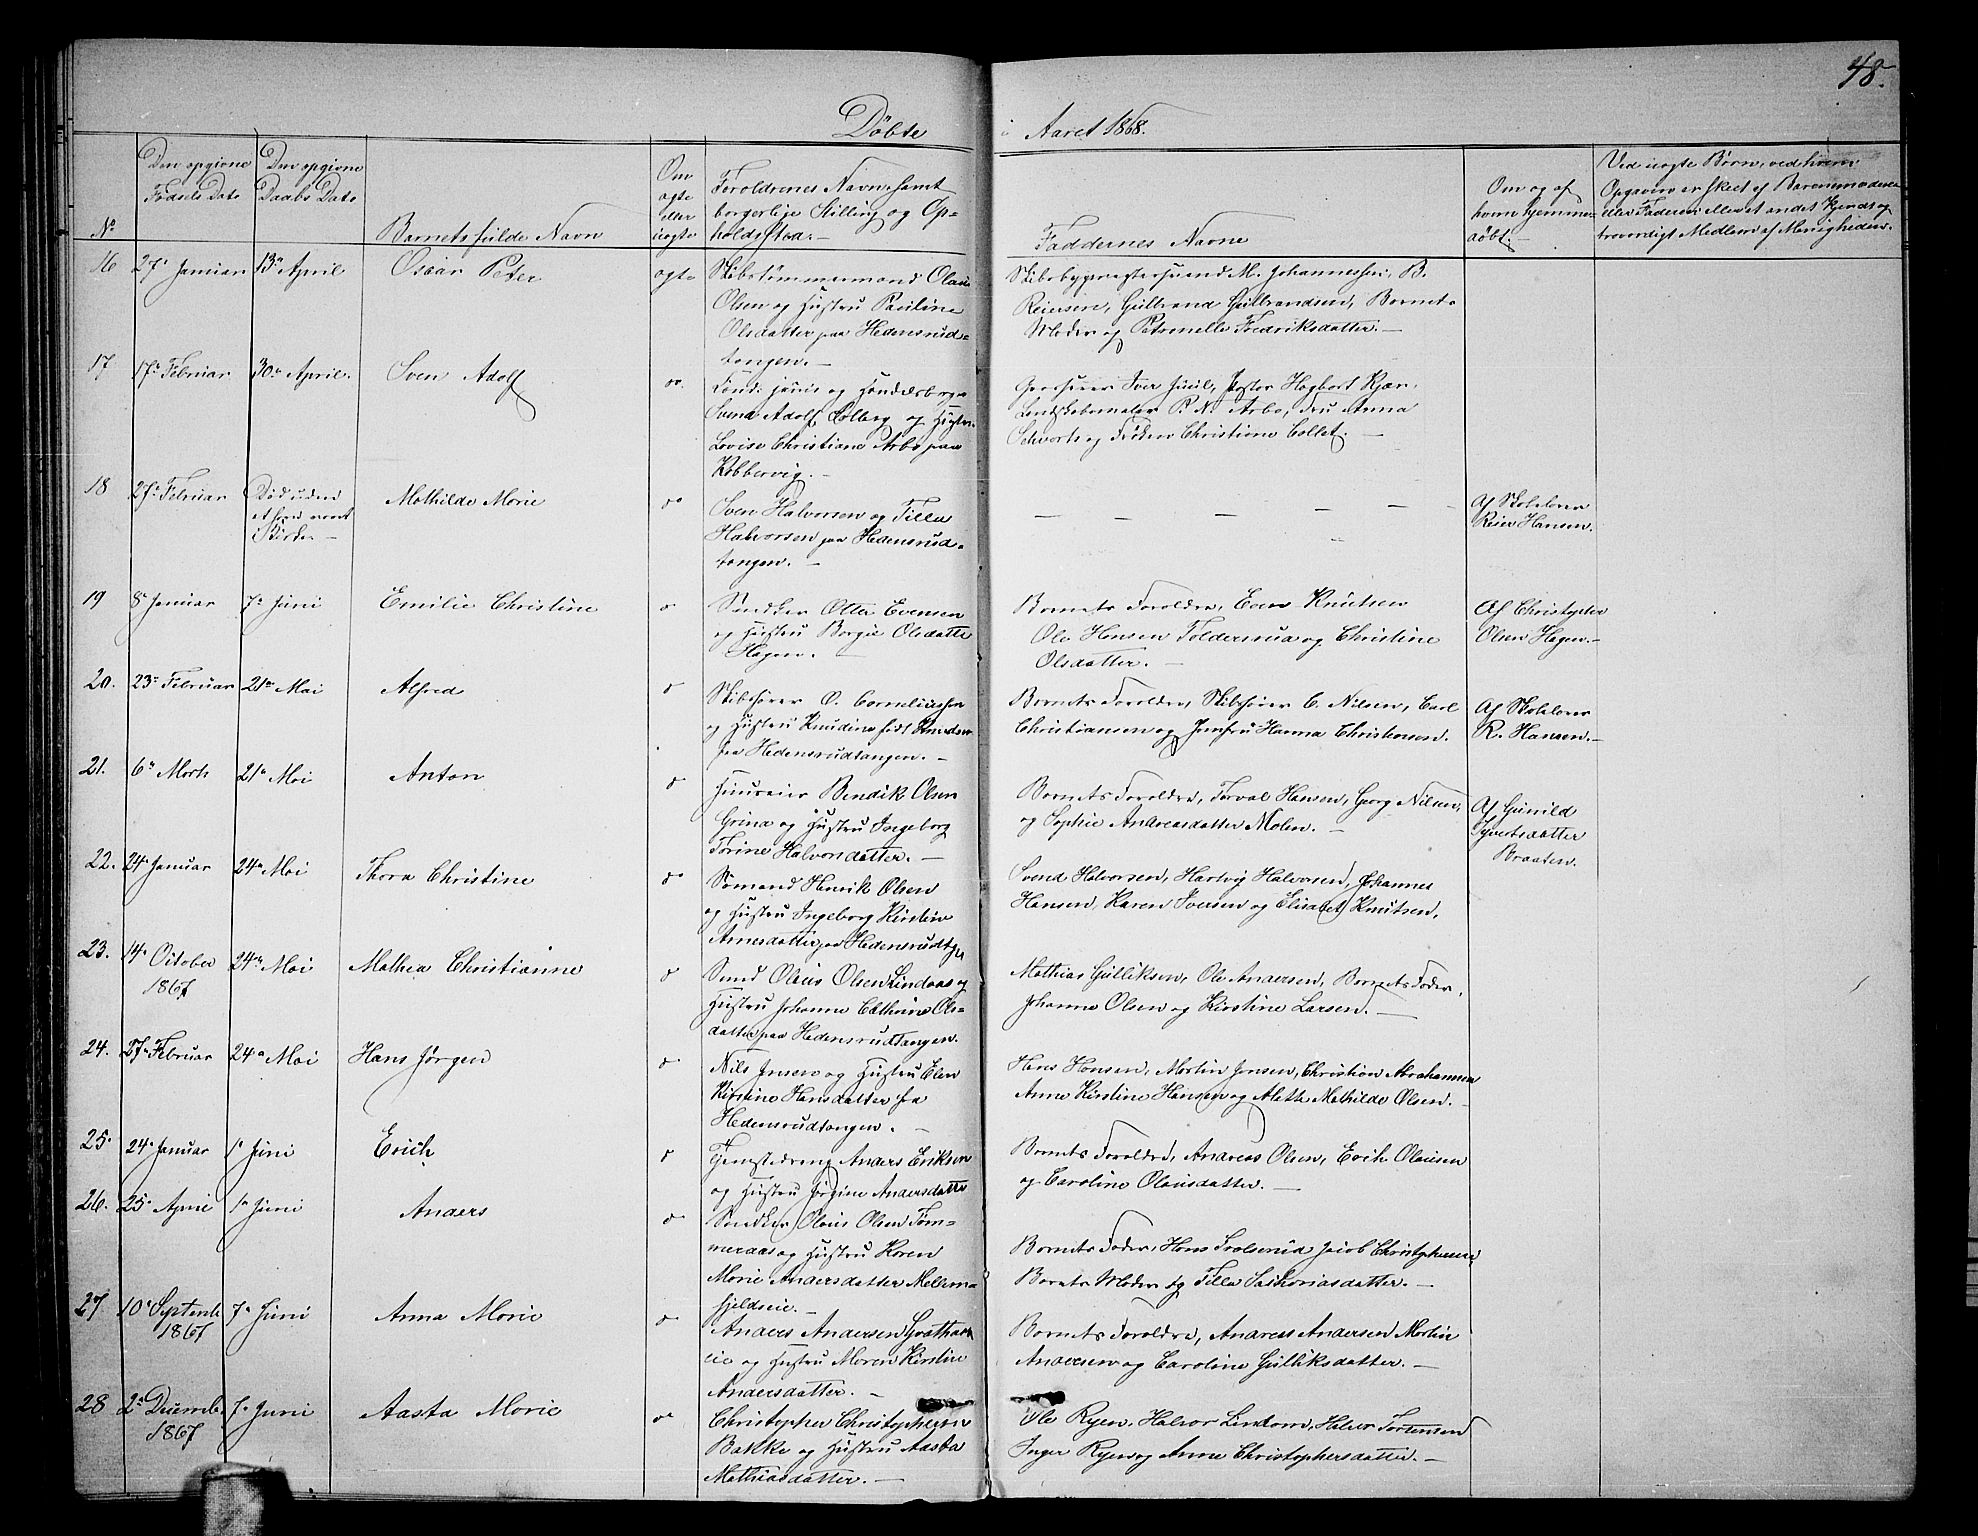 48.
Döbte i Aaret 1868.
No
Den opgivne Fødsels Dato
Den opgivne Daabs Dato
Barnets fulde Navn
Om ægte eller uægte
Foreldrenes Navn samt borgerlige Stilling og Opholdssted.-
Faddernes Navne
Om og af hvem hjemmedöbt.-
Ved uægte Börn, ved hvem Opgaven er skeet af Barnemoderen eller Faderen eller et andet kjendt og troverdigt Medlem af Menigheden.
16 27de Januar 13de April Oscar Peter ægte
Skibstömmermand Olaus
Olsen og Hustru Pauline
Olsdatter paa Hedensrud-
tangen.-
Skibsbyggergtersvend M. Johannessen, B.
Reiersen, Gulbrand Gulbrandsen, Barnets
Moder og Petronelle Fredriksdatter.-
17 17de Februar 30de April. Sven Adolf do.
Svend Adolf Solberg og Hustru
Lovise Christiane Arbo paa
Kobbervig.-
Grosserer Iver Juul, Pastor Hagbart Kjær,
Landskabsmaler P. N. Arbo, Fru Anna
Schvartz og Fröken Christiane Collet.-
18 27de Februar Död uden at have været i Kirken- Mathilde Marie do
Sven Halvorsen og Tilla
Halvorsen paa Hedensrud-
tangen.-
- - - - - -
Af Skolelærer
Reier Hansen.
19 8de Januar 7de Juni Emilie Christine do
Snedker Otto Evensen
og Hustru Borgil Olsdatter
Hagen.-
Barnets Foreldre, Even Knutsen
Ole Hansen Toldersrud og Christine
Olsdatter.-
Af Christopher
Olsen Hagen.-
20. 23de Februar 21de Mai Alfred do
Skibsförer O. Corneliussen
og Hustru Knudine född Knudsen
paa Hedensrudtangen.-
Barnets Foreldre, Skibsförer C. Nilsen, Carl
Christiansen og Jomfru Hanna Christensen.
Af Skolelærer
R. Hansen.-
21. 6te Marts 21de Mai Anton do
Huuseier Bendik Olsen
Grina og Hustru Ingeborg
Torine Halvorsdatter.-
Barnets Foreldre, Torval Hansen, Georg Nilsen,
og Sophie Andreasdatter Molen.-
Af Gunild
Syvertsdatter
Braaten.
22. 24de Januar 24de Mai Thora Christine do
Sömand Henrik Olsen
og Hustru Ingeborg Kirstine
Arnesdatter paa Hedensrudtgn
Svend Halvorsen, Hartvig Halvorsen, Johannes
Hansen, Karen Iversen og Elisabet Knutsen.
23. 14de October 1867 24de Mai Mathea Christianne do
Smed Olaus Olsen Lindaas og
Hustru Johanne Cathrine Ols-
datter paa Hedensrudtangen.
Mathias Gulliksen, Ole Andersen, Barnets Fader,
Johanne Olsen og Kirstine Larsen.-
24. 27de Februar 24de Mai Hans Jørgen do
Nils Jensen og Hustru Elen
Kirstine Hansdatter paa
Hedensrudtangen.-
Hans Hansen, Martin Jensen, Christian Abrahamsen
Anne Kirstine Hansen og Alette Mathilde Olsen.-
25. 24de Januar 1ste Juni Erich do
Tjenestedreng Anders Eriksen
og Hustru Jørgine Andersdatter
Barnets Foreldre, Andreas Olsen, Erik Olausen
og Caroline Olausdatter.-
26. 25de April 1ste Juni Anders do
Snedker Olaus Olsen Töm-
meraas og Hustru Karen
Marie Andersdatter Mellem-
fjeldseie.-
Barnets Fader, Hans Trolsrud, Jacob Christophersen,
Barnets Moder og Tilla Sakariasdatter.-
27. 10de Septemb. 1867 7de Juni Anna Marie do
Anders Andersen
eie og Hustru Maren Kirstine
Andersdatter.-
Barnets Foreldre, Andreas Andersen Martin
Andersen og Caroline Gulliksdatter.-
28 2den Decemb. 1867 7de Juni Aasta Marie do
Christopher Christophersen
Bakke og Hustru Aasta
Mathiasdatter.-
Ole Ryen, Halvor Lindom, Halvor Torstensen
Inger Ryen og Anne Christophersdatter.-